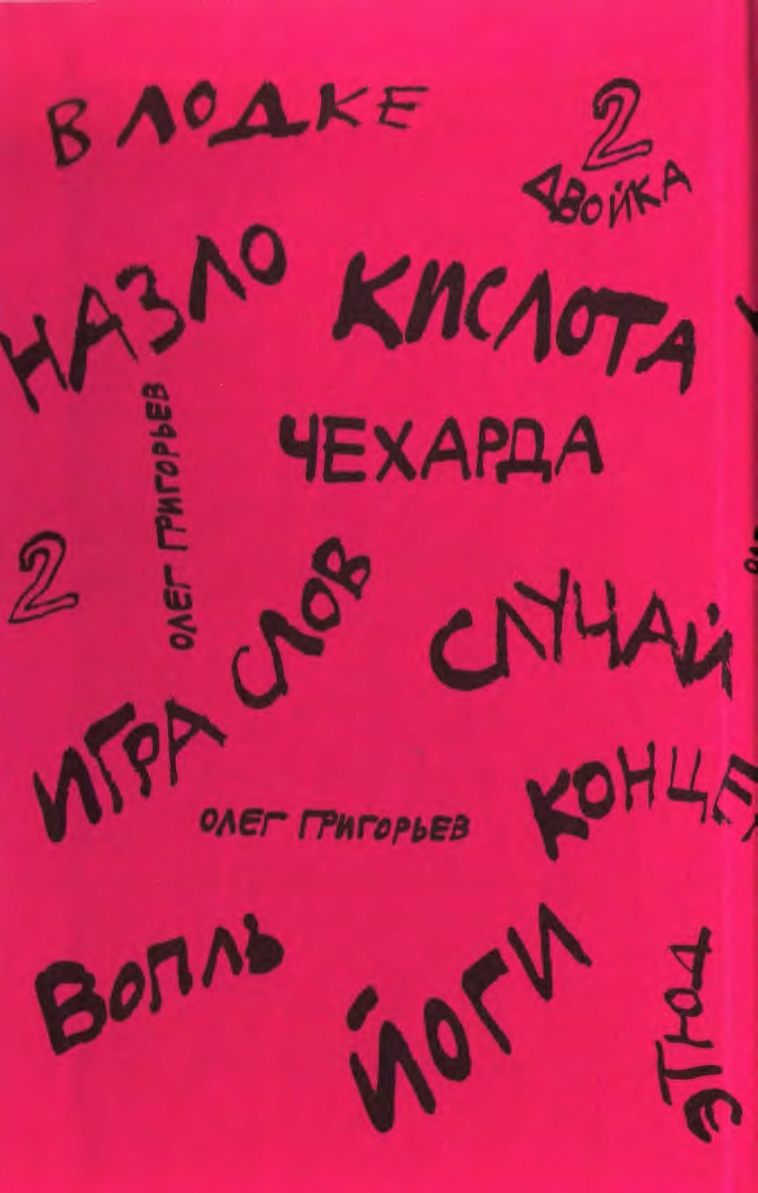 В ЛОДКЕ
2
ДВОЙКА
НАЗЛО
КИСЛОТА
ОЛЕГ ГРИГОРЬЕВ
ЧЕХАРДА
2
ИГРА СЛОВ
СЛУЧАЙ
ОЛЕГ ГРИГОРЬЕВ
ВОПЛЬ
ЙОГИ
ЭТЮД